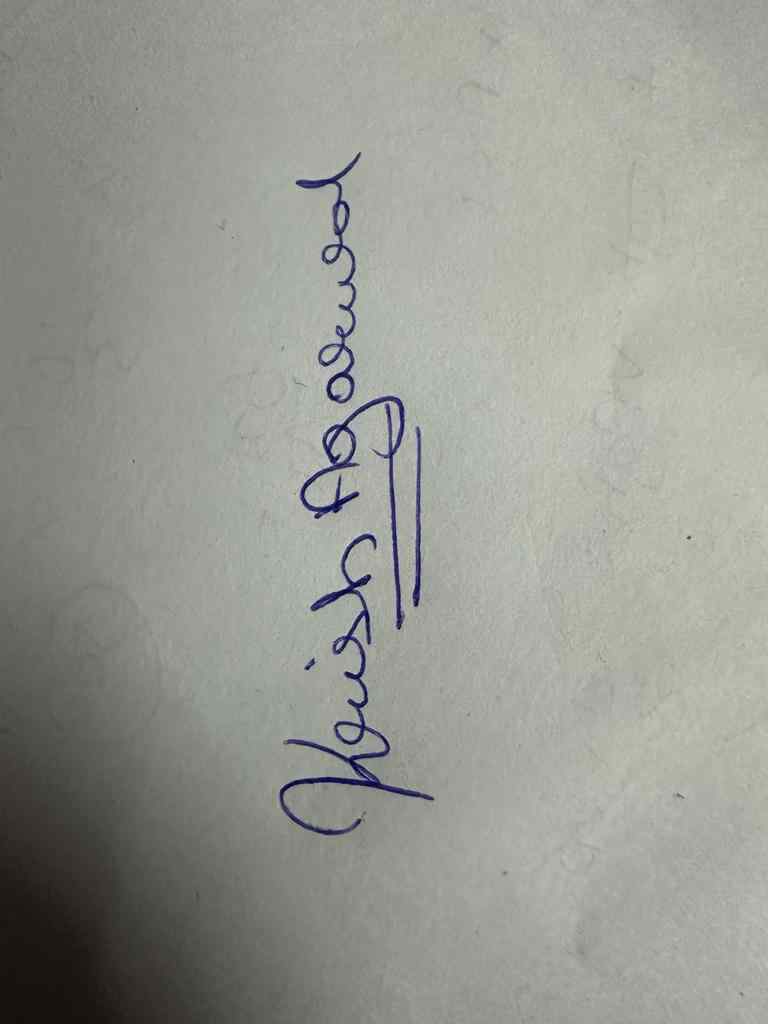 Krish Agarwal